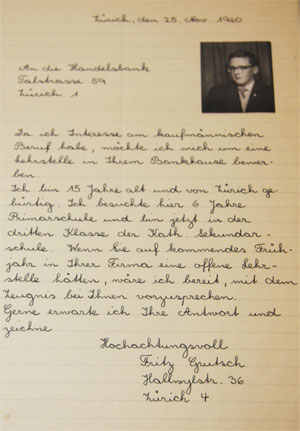 Zürich, den 25. Nov. 1960
An die Handelsbank
Talstrasse 59
Zürich 1
Da ich Interesse am kaufmännischen
Beruf habe, möchte ich mich um eine
Lehrstelle in Ihrem Bankhause bewer-
ben.
Ich bin 15 Jahre alt und von Zürich ge-
bürtig. Ich besuchte hier 6 Jahre
Primarschule und bin jetzt in der
dritten Klasse der Kath. Sekundar-
schule. Wenn Sie auf kommendes Früh-
jahr in Ihrer Firma eine offene Lehr-
stelle hätten, wäre ich bereit, mit dem
Zeugnis bei Ihnen vorzusprechen.
Gerne erwarte ich Ihre Antwort und
zeichne
Hochachtungsvoll
Fritz Gutsch
Hallwylstr. 36
Zürich 4